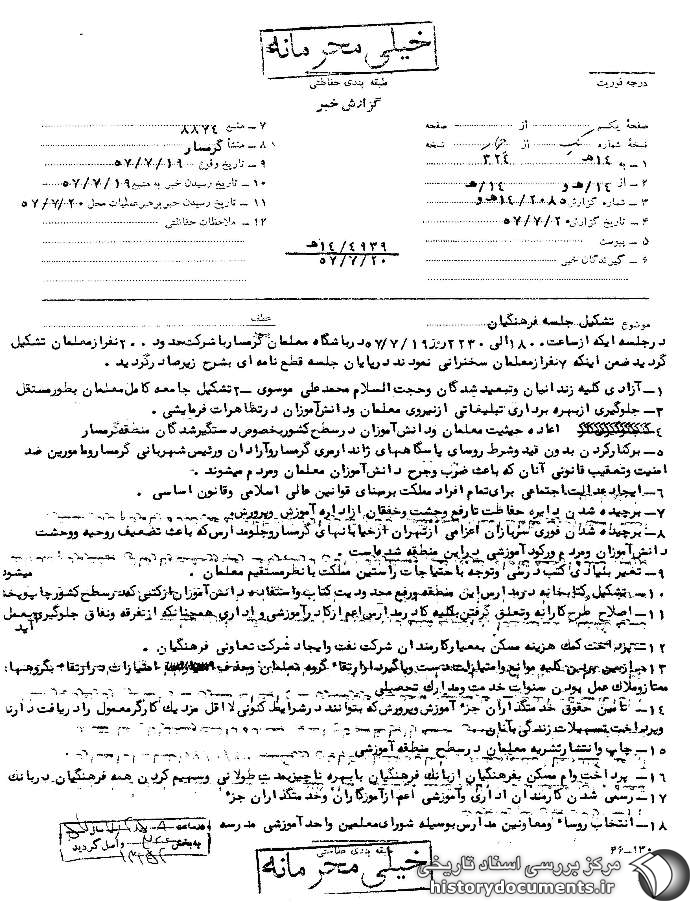 خیلی محرمانه
طبقه بندی حفاظتی
درجه فوریت
گزارش خبر
صفحهٔ یکم از صفحه
نسخهٔ شماره از نسخه
۱ – به ۱۴هـ ۳۲۴
۲ – از ۱۴/هـ و ۱۴/هـ
۳ – شماره گزارش ۱۴/۲۰۸۵هـ و
۴ – تاریخ گزارش ۵۷/۷/۲۰
۵ – پیوست
۶ – گیرندگان خبر
۷ – منبع ۸۸۷۴
۸ – منشأ گرمسار
۹ – تاریخ وقوع ۵۷/۷/۱۹
۱۰ – تاریخ رسیدن خبر به منبع ۵۷/۷/۱۹
۱۱ – تاریخ رسیدن خبر برهبر عملیات محل ۵۷/۷/۲۰
۱۲ – ملاحظات حفاظتی
۱۴/۴۹۳۹هـ
۵۷/۷/۲۰
موضوع تشکیل جلسه فرهنگیان
عطف
درجلسه ایکه ازساعت ۱۸۰۰ الی ۲۲۳۰ روز ۵۷/۷/۱۹ درباشگاه معلمان گرمسار باشرکت حدود ۲۰۰ نفرازمعلمان تشکیل
گردید ضمن اینکه ۷ نفرازمعلمان سخنرانی نمودند درپایان جلسه قطع نامه ای بشرح زیر صادر گردید .
۱– آزادی کلیه زندانیان وتبعید شدگان وحجت السلام محمد علی موسوی –۲ تشکیل جامعه کامل معلمان بطورمستقل
۳– جلوگیری ازبهره برداری تبلیغاتی ازنیروی معلمان ودانش آموزان درتظاهرات فرمایشی .
۴– اعاده حیثیت معلمان ودانش آموزان درسطح کشوربخصوص دستگیرشدگان منطقه گرمسار
۵– برکنارکردن بدون قید وشرط روسای پاسگاههای ژاندارمری گرمسار وآرادان ورئیس شهربانی گرمسار ومامورین ضد
امنیت وتعقیب قانونی آنان که باعث ضرب وجرح دانش آموزان معلمان ومردم میشوند .
۶– ایجاد عدالت اجتماعی برای تمام افراد مملکت برمبنای قوانین عالی اسلامی وقانون اساسی .
۷– برچیده شدن دایره حفاظت تارفع وحشت وخفقان ازاداره آموزش وپرورش .
۸– برچیده شدن فوری سربازان اعزامی ازتهران ازخیابانهای گرمسار وجلو مدارس که باعث تضعیف روحیه ووحشت
دانش آموزان ومردم ورکود آموزشی دراین منطقه شده است .
۹– تغییر بنیادی کتب درسی وتوجه باحتیاجات راستین مملکت با نظر مستقیم معلمان .
۱۰– تشکیل کتابخانه درمدارس این منطقه ورفع محدودیت کتاب واستفاده دانش آموزان ازکتبی که درسطح کشور چاپ وپخش میشود
۱۱– اصلاح طرح کارانه وتعلق گرفتن بکلیه کادر مدارس اعم ازکادرآموزشی واداری همچنانکه ازتفرقه ونفاق جلوگیری بعمل آید
۱۲– پرداخت کمک هزینه مسکن بمعیارکارمندان شرکت نفت وایجاد شرکت تعاونی فرهنگیان .
۱۳– ازبین بردن کلیه موانع وامتیازات دست وپاگیر درارتقاء گروه معلمان وحذف امتیازات درارتقاء بگروهها
ممتاز وملاک عمل بودن سنوات خدمت ومدارک تحصیلی
۱۴– تامین حقوق خدمتگذاران جزء آموزش وپرورش که بتوانند درشرایط کنونی لااقل مزد یک کارگر معمول را دریافت دارند
وپرداخت تسهیلات زندگی بآنان
۱۵– چاپ وانتشار نشریه معلمان درسطح منطقه آموزشی
۱۶– پرداخت وام مسکن بفرهنگیان ازبانک فرهنگیان بابهره ناچیز بمدت طولانی وسهیم کردن همه فرهنگیان دربانک
۱۷– رسمی شدن کارمندان اداری وآموزشی اعم ازآموزگاران وخدمتگذاران جزء
۱۸– انتخاب روساء ومعاونین مدارس بوسیله شورای معلمین واحد آموزشی مدرسه
۶۶–۱۳۰
طبقه بندی حفاظتی
خیلی محرمانه
واصل گردید
مرکز بررسی اسناد تاریخی
historydocuments.ir